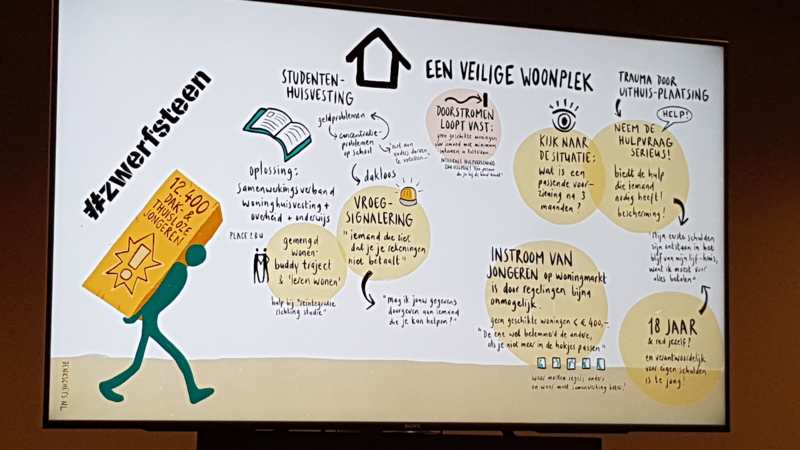 #zwerfsteen
12.400
DAK- &
THUISLOZE
JONGEREN
DENKSCHETS.NL
STUDENTEN-
HUISVESTING
geldproblemen
concentratie-
problemen
op school
dakloos
oplossing:
Samenwerkingsverband
woninghuisvesting +
overheid + onderwijs
PLACE 2BU
gemengd
wonen
buddy traject
& 'leren wonen'
hulp bij "reïntegratie
richting studie"
VROEG-
SIGNALERING
"iemand die ziet
dat je je rekeningen
niet betaalt"
"mag ik jouw gegevens
doorgeven aan iemand
die je kan helpen?"
EEN VEILIGE WOONPLEK
DOORSTROMEN
LOOPT VAST:
geen geschikte woningen
voor iemand met minimum
inkomen in
KIJK NAAR
DE SITUATIE:
wat is een
passende voor-
ziening na 3
maanden?
INSTROOM VAN
JONGEREN op woningmarkt
is door regelingen bijna
onmogelijk.
geen geschikte woningen < € 400,-
"De ene wet belemmerd de andere,
als je niet meer in de hokjes passen"
waar moeten regels anders
en waar moet samenwerking beter?
TRAUMA DOOR
UITHUIS-PLAATSING
HELP!
NEEM DE
HULPVRAAG
SERIEUS!
biedt de hulp
die iemand
nodig heeft!
bescherming!
"Mijn eerste schulden
zijn ontstaan in het
blijf van mijn lijf-huis,
want ik moest voor
alles betalen"
18 JAAR
en verantwoordelijk
voor eigen schulden
is te jong!
SONY